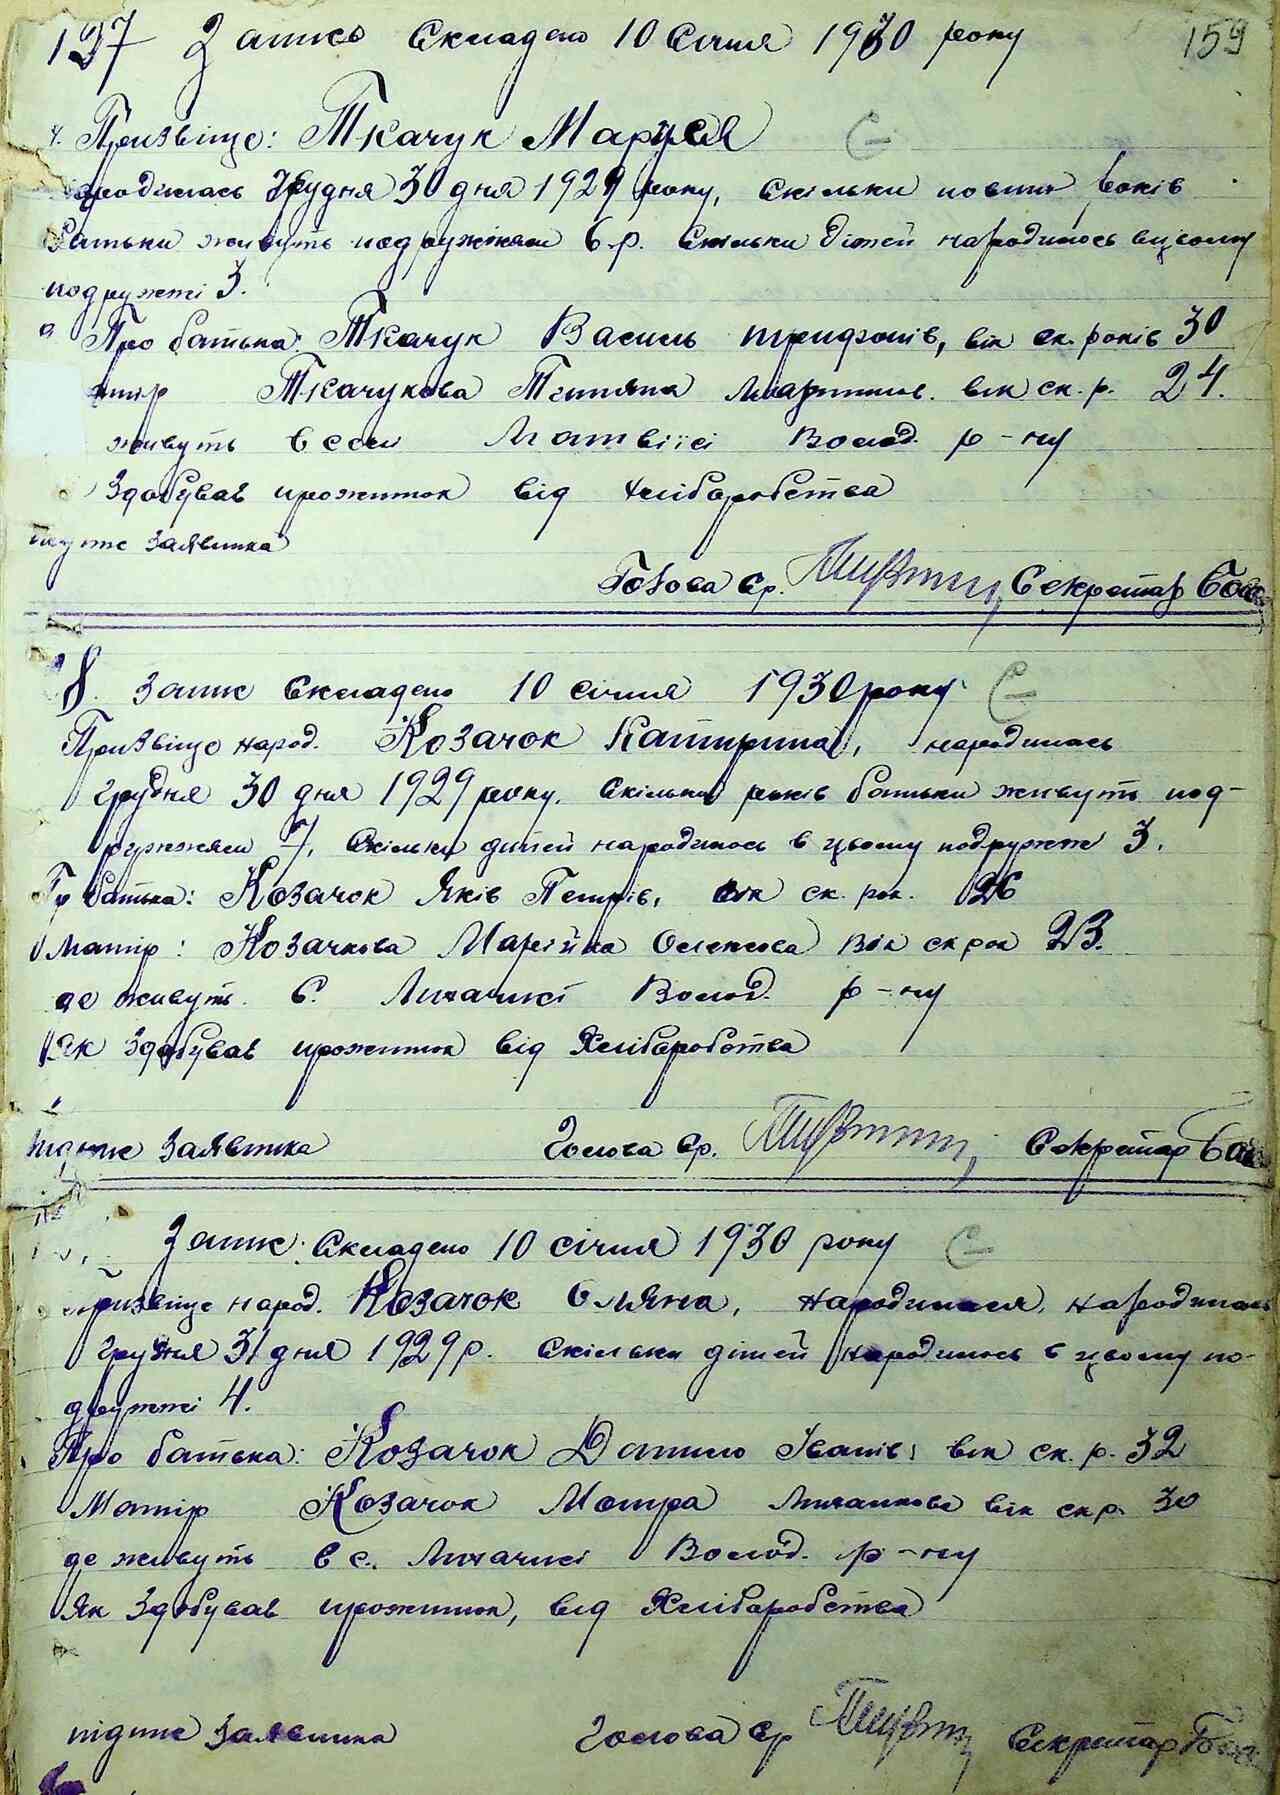 137 Запись Складено 10 Січня 1930 року 159
Призвіще: Ткачук Маруся
народилась Грудня 30 дня 1929 року, Скільки повних років
батьки живуть подружжям 6 р. Скільки дітей народилось вцьому
подружжі 3.
Про батька: Ткачук Василь Трифонів, вік ск. років 30
матір Ткачукова Тетяна Мартинов. вік ск. р. 24.
живуть в селі Волод. р-ну
Здобував прожиток від хліборобства
підпис заявника
Голова ср. Секретар
8. Запис Складено 10 січня 1930 року
Призвіще народ. Козачок Катирина, народилась
грудня 30 дня 1929 року. Скільки років батьки живуть под-
ружжям 7, Скільки дитей народилось в цьому подружжі 3.
Пр батька: Козачок Яків Петрів, вік ск. рок. 26
Матір: Козачкова Марійка Олексова вік ск рок 23.
де живуть с. Личанці Волод. р-ну
Як Здобував прожиток від Хліборобства
підпис заявника Голова ср. Секретар
Запис Складено 10 січня 1930 року
Призвіще народ. Козачок Оляна, народилася, народилась
грудня 31 дня 1929 р. Скільки дітей народилось в цьому по-
дружжі 4.
Про батька: Козачок Данило Іванів, вік ск. р. 32
Матір Козачок Мотра вік ск р. 30
де живуть в с. Личанці Волод. р-ну
Як Здобував прожиток, від Хліборобства
підпис Заявника Голова ср Секретар